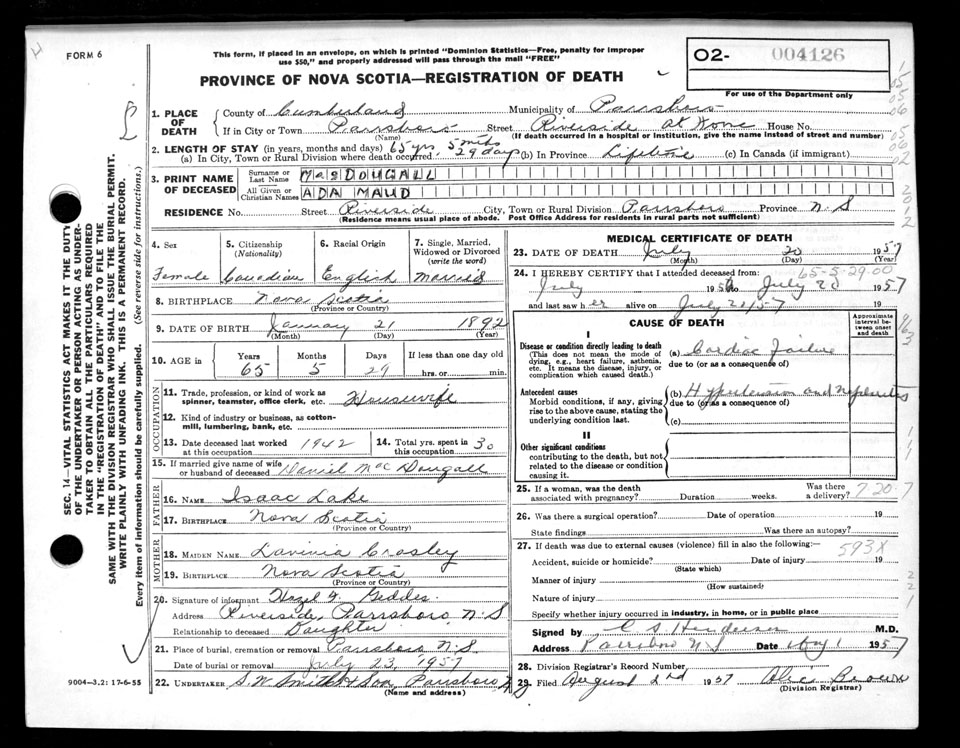 FORM 6
This form, if placed in an envelope, on which is printed "Dominion Statistics—Free, penalty for improper
use $50," and properly addressed will pass through the mail "FREE"
PROVINCE OF NOVA SCOTIA—REGISTRATION OF DEATH
O2- 004126
For use of the Department only
SEC. 14—VITAL STATISTICS ACT MAKES IT THE DUTY
OF THE UNDERTAKER OR PERSON ACTING AS UNDER-
TAKER TO OBTAIN ALL THE PARTICULARS REQUIRED
IN THE "REGISTRATION OF DEATH" AND TO FILE THE
SAME WITH THE DIVISION REGISTRAR WHO SHALL ISSUE THE BURIAL PERMIT.
WRITE PLAINLY WITH UNFADING INK. THIS IS A PERMANENT RECORD.
Every item of information should be carefully supplied. (See reverse side for instructions.)
1. PLACE OF DEATH
County of Cumberland Municipality of Parrsboro
If in City or Town Parrsboro Street Riverside at Home House No.
(Name) (If death occurred in a hospital or Institution, give the name instead of street and number)
2. LENGTH OF STAY (in years, months and days) 65 yrs, 5 mths
(a) In City, Town or Rural Division where death occurred, 29 days (b) In Province Lifetime (c) In Canada (if immigrant)
3. PRINT NAME OF DECEASED
Surname or Last Name MacDOUGALL
All Given or Christian Names ADA MAUD
RESIDENCE No. Street Riverside City, Town or Rural Division Parrsboro Province N.S
(Residence means usual place of abode. Post Office Address for residents in rural parts not sufficient)
4. Sex 5. Citizenship (Nationality) 6. Racial Origin 7. Single, Married, Widowed or Divorced (write the word)
Female Canadian English Married
8. BIRTHPLACE Nova Scotia
(Province or Country)
9. DATE OF BIRTH January 21 1892
(Month) (Day) (Year)
10. AGE in Years Months Days If less than one day old
65 5 29 hrs. or min.
OCCUPATION
11. Trade, profession, or kind of work as spinner, teamster, office clerk, etc. Housewife
12. Kind of industry or business, as cotton-mill, lumbering, bank, etc.
13. Date deceased last worked at this occupation 1942 14. Total yrs. spent in this occupation 30
15. If married give name of wife or husband of deceased Daniel MacDougall
FATHER
16. NAME Isaac Lake
17. BIRTHPLACE Nova Scotia
(Province or Country)
MOTHER
18. MAIDEN NAME Lavinia Crosley
19. BIRTHPLACE Nova Scotia
(Province or Country)
20. Signature of informant Hazel Geddes.
Address Riverside, Parrsboro, N.S
Relationship to deceased Daughter
21. Place of burial, cremation or removal Parrsboro N.S.
Date of burial or removal July 23, 1957
22. UNDERTAKER S.W. Smith & Son, Parrsboro N.S
(Name and address)
9004-3.2: 17-6-55
MEDICAL CERTIFICATE OF DEATH
23. DATE OF DEATH July 20 1957
(Month) (Day) (Year)
65-5-29.00
24. I HEREBY CERTIFY that I attended deceased from:
July 1956 to July 20 1957
and last saw her alive on July 20/57 19
CAUSE OF DEATH
Approximate interval between onset and death
I
Disease or condition directly leading to death
(This does not mean the mode of dying, e.g., heart failure, asthenia, etc. It means the disease, injury, or complication which caused death.)
(a) Cardiac Failure
due to (or as a consequence of)
Antecedent causes
Morbid conditions, if any, giving rise to the above cause, stating the underlying condition last.
(b) Hypertension and Nephritis
due to (or as a consequence of)
(c)
II
Other significant conditions
contributing to the death, but not related to the disease or condition causing it.
25. If a woman, was the death associated with pregnancy? Duration weeks. Was there a delivery? 7 20-7
26. Was there a surgical operation? Date of operation 19
State findings Was there an autopsy?
27. If death was due to external causes (violence) fill in also the following:— 593X
Accident, suicide or homicide? Date of injury 19
(State which)
Manner of injury
(How sustained)
Nature of injury
Specify whether injury occurred in industry, in home, or in public place
Signed by C S Henderson M.D.
Address Parrsboro N S Date 1957
28. Division Registrar's Record Number
29. Filed August 2nd 1957 Alic Brown
(Division Registrar)